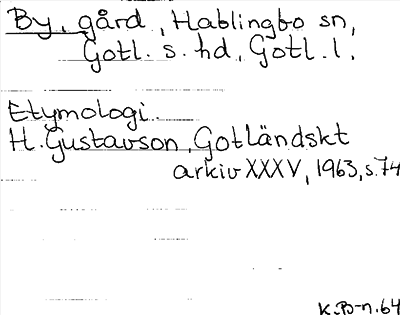 By, gård, Hablingbo sn,
Gotl. s. hd, Gotl. l.
Etymologi.
H. Gustavson, Gotländskt
arkiv XXXV, 1963, s. 74
K. B-n. 64